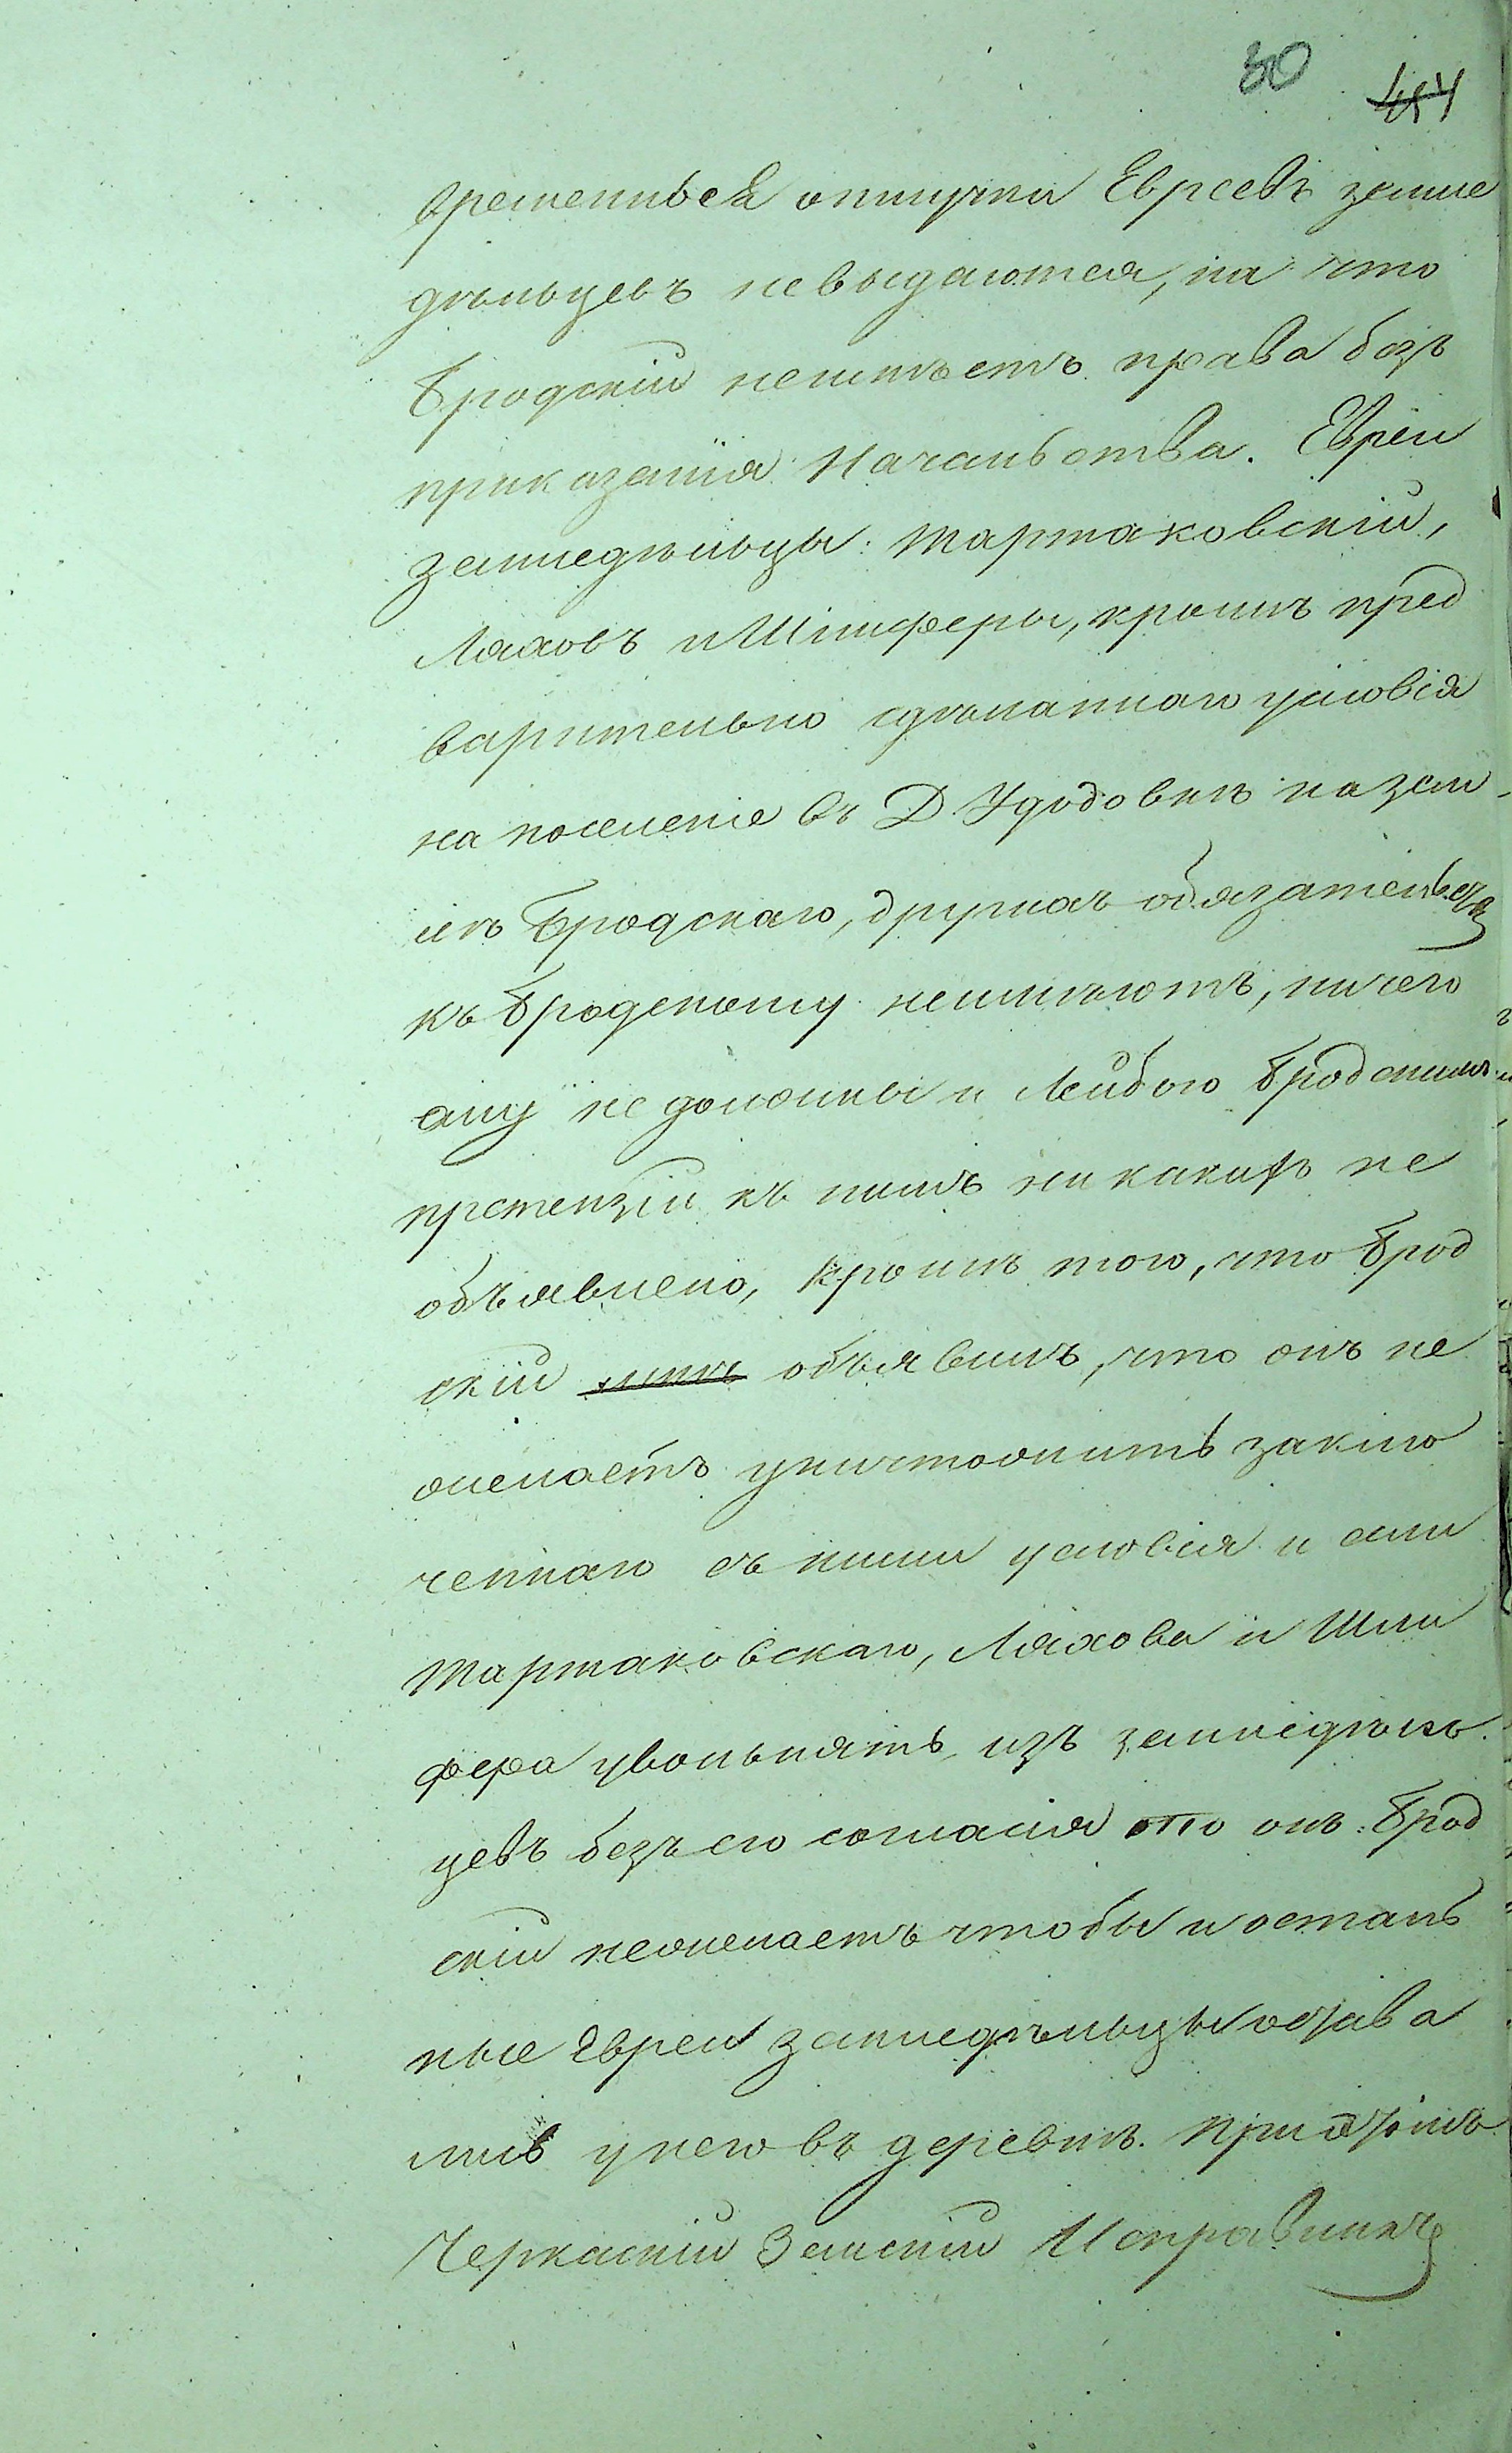 30
44
временныя отлучки Евреевъ земле
дѣльцевъ невыдаются, на что
Бродскій неимѣетъ права безъ
приказанія Начальства. Евреи
земледѣльцы: Тартаковскій,
Ляховъ и Шлиферы, кромѣ пред
варительно сдѣланнаго условія
на поселеніе въ Д. Удодовкѣ на зем-
лѣ Бродскаго, другихъ обязательствъ
къ Бродскому неимѣютъ, ничего
ему не должны и Лейбою Бродскимъ
претензіи къ нимъ никакихъ не
объявлено, кромѣ того, что Брод
скій объявилъ, что онъ не
желаетъ уничтожить заклю
ченнаго съ ними условія и если
Тартаковскаго, Ляхова и Шли
фера увольнять изъ земледѣль
цевъ безъ его согласія то онъ Брод
скій нежелаетъ чтобы и осталь
ные Евреи земледѣльцы остава
лись у него въ деревнѣ. При этомъ
Черкаскій Земскій Исправникъ